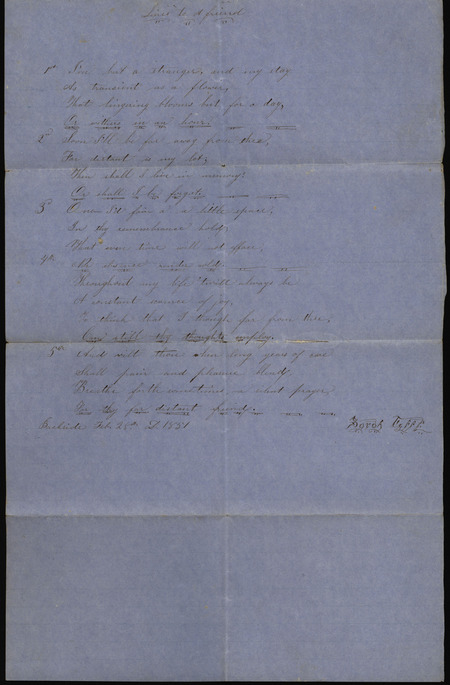 Lines to a friend
1st I'm but a stranger, and my day
As transient as a flower,
That lingering blooms but for a day,
Or withers in an hour.
2d Soon I'll be far away from thee,
Far distant is my lot;
Then shall I live in memory?
Or shall I be forgot
3d O now I'd fain a little space,
In thy remembrance hold,
What time will not efface,
4th
Throughout my life 'twill always be
A constant source of joy,
To think that I though far from thee,
Can still thy thoughts employ.
5th And wilt thou when long years of
Shall pain and pleasure blend,
Breathe forth in silent prayer,
For thy far distant friend.
Feb. 28th 1831